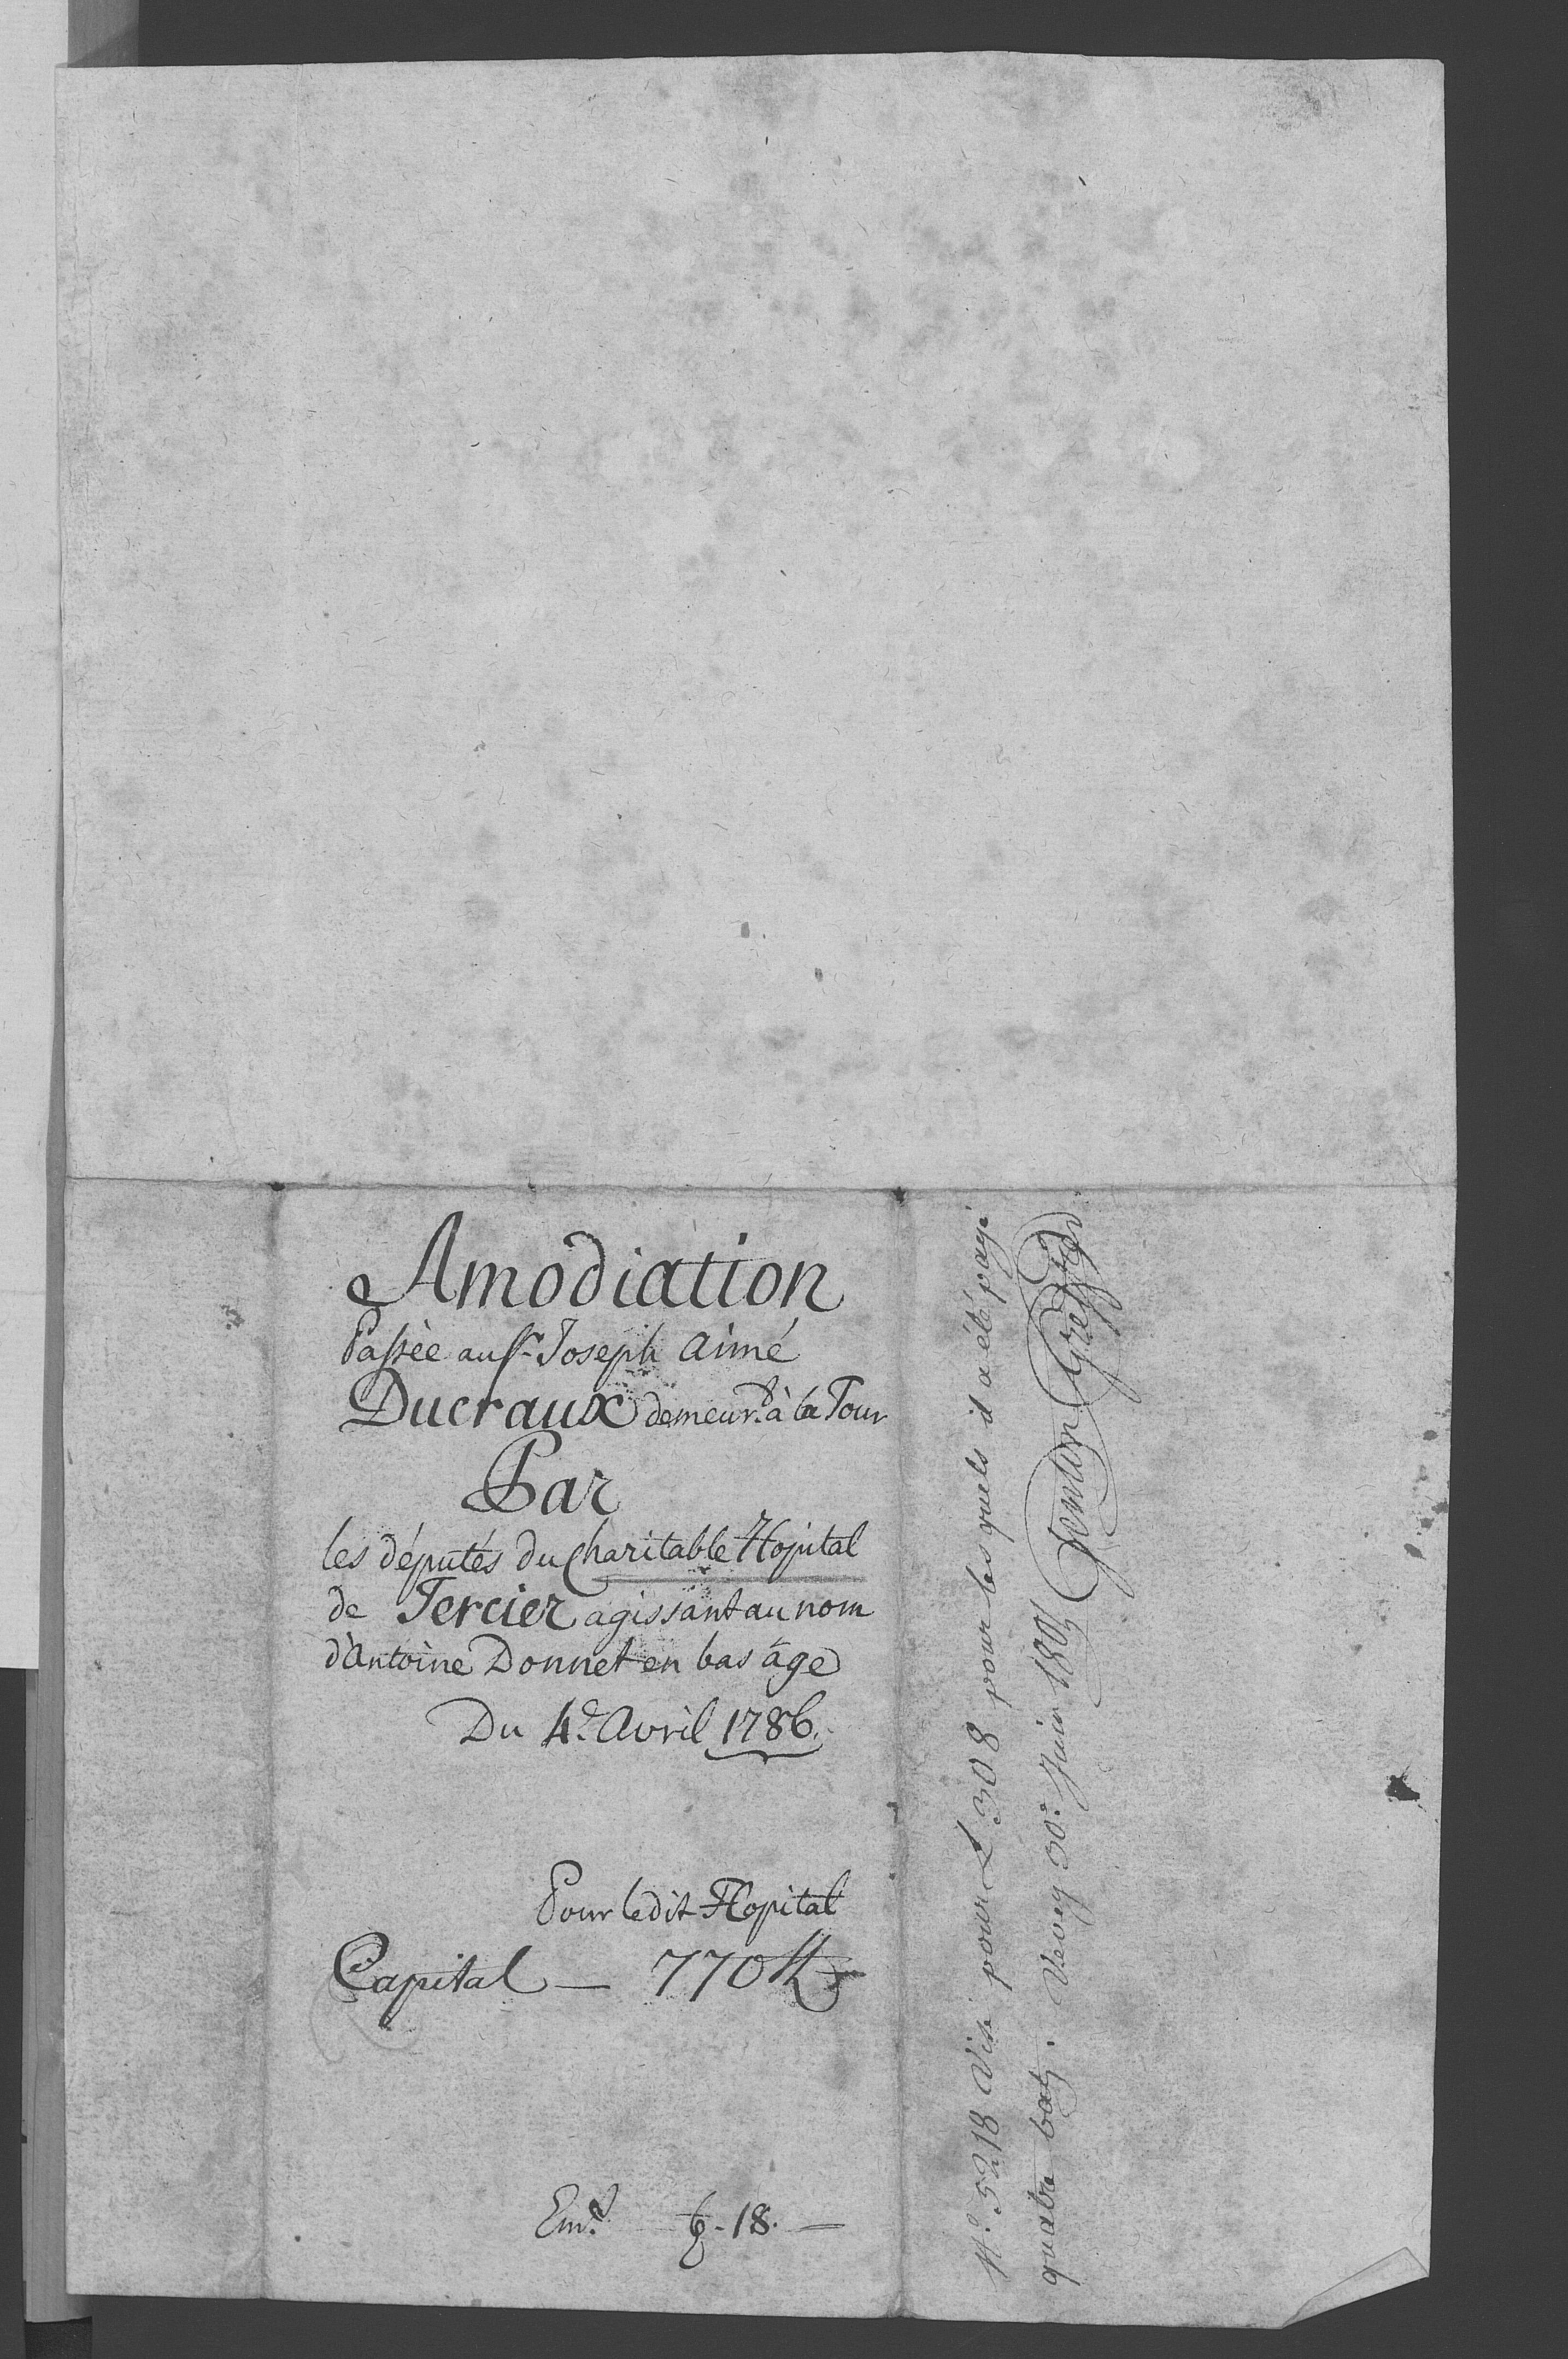 Amodiation
Passèe au Sr. Joseph Aimé
Ducraux demeurt. à la Tour
Par
les députés du Charitable Hopital
de Tercier agissant au nom
d'Antoine Donnet en bas âge
Du 4e. Avril 1786.
Pour ledit Hopital
Capital — 770 lt
Emt. 6 - 18. —
No. 5218 Visé pour L 308 pour les quels il a été payé
quatre batz. Vevey 30e. Juin 1801 Genton Greffier